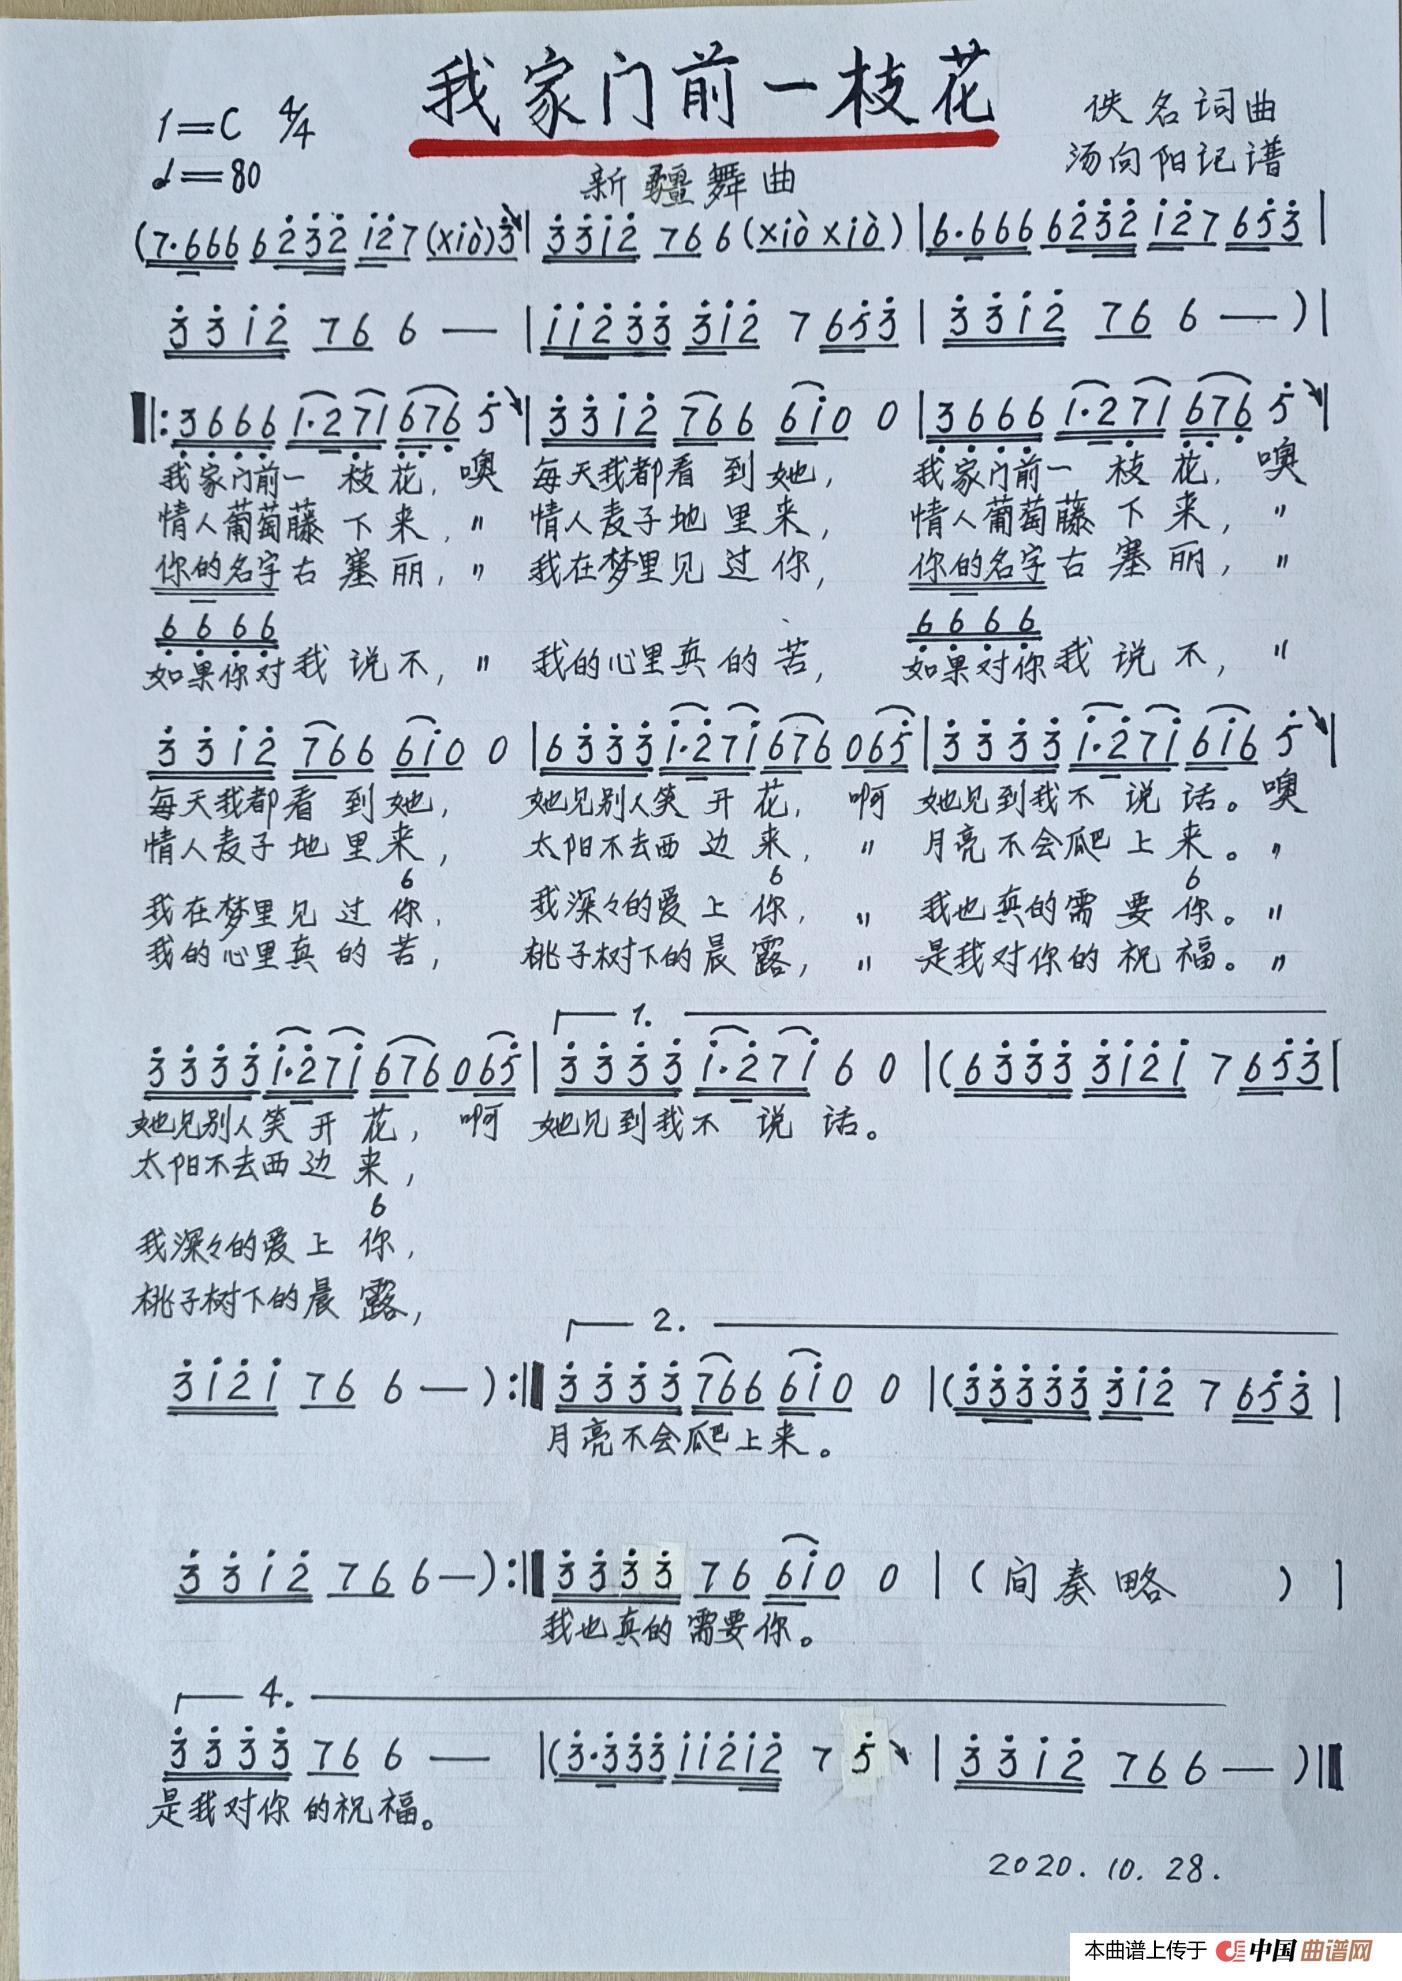 我家门前一枝花
1=C 4/4
佚名词曲
♩=80
新疆舞曲
汤向阳记谱
(7·666 62̇3̇2̇ 1̇2̇7 (xiò)3̇↘| 3̇3̇1̇2̇ 76 6 (xiò xiò) |6·666 62̇3̇2̇ 1̇2̇7 65̇3̇ |
3̇3̇1̇2̇ 76 6 — |1̇1̇2̇3̇3̇ 3̇1̇2̇ 7 65̇3̇ | 3̇3̇1̇2̇ 76 6 — )|
‖:3̣6̣6̣6̣ 1·27̣1 6̣7̣6̣ 5̇↘| 3̇3̇1̇2̇ 766 61̇0 0 |3̣6̣6̣6̣ 1·27̣1 6̣7̣6̣ 5̇↘|
我家门前一 枝花, 噢 每天我都看到她, 我家门前一 枝花, 噢
情人葡萄藤下来, 〃 情人麦子地里来, 情人葡萄藤下来, 〃
你的名字古塞丽, 〃 我在梦里见过你, 你的名字古塞丽, 〃
6̣6̣6̣6̣ 6̣6̣6̣6̣
如果你对我说不, 〃 我的心里真的苦, 如果对你我说不, 〃
3̇3̇1̇2̇ 766 61̇0 0 |63̇3̇3̇ 1̇·2̇71̇ 676 065̇ |3̇3̇3̇3̇ 1̇·2̇71̇ 61̇6 5̇↘|
每天我都看到她, 她见别人笑开花, 啊 她见到我不说话。噢
情人麦子地里来, 太阳不去西边来, 〃 月亮不会爬上来。〃
6 6 6
我在梦里见过你, 我深々的爱上你, 〃 我也真的需要你。〃
我的心里真的苦, 桃子树下的晨露, 〃 是我对你的祝福。〃
1.
3̇3̇3̇3̇ 1̇·2̇71̇ 676 065̇ | 3̇3̇3̇3̇ 1̇·2̇71̇ 6 0 |(63̇3̇3̇ 3̇1̇2̇1̇ 7 65̇3̇|
她见别人笑开花, 啊 她见到我不说话。
太阳不去西边来,
6
我深々的爱上你,
桃子树下的晨露,
2.
3̇1̇2̇1̇ 76 6 — ):‖ 3̇3̇3̇3̇ 766 61̇0 0 |(3̇3̇3̇3̇3̇ 3̇1̇2̇ 7 65̇3̇ |
月亮不会爬上来。
3̇3̇1̇2̇ 76 6 — ):‖ 3̇3̇3̇3̇ 76 61̇0 0 |( 间奏略 )|
我也真的需要你。
4.
3̇3̇3̇3̇ 76 6 — |(3̇·3̇3̇3̇ 1̇1̇2̇1̇2̇ 7 5̇↘ | 3̇3̇1̇2̇ 76 6 — )‖
是我对你的祝福。
2020.10.28.
本曲谱上传于 中国曲谱网